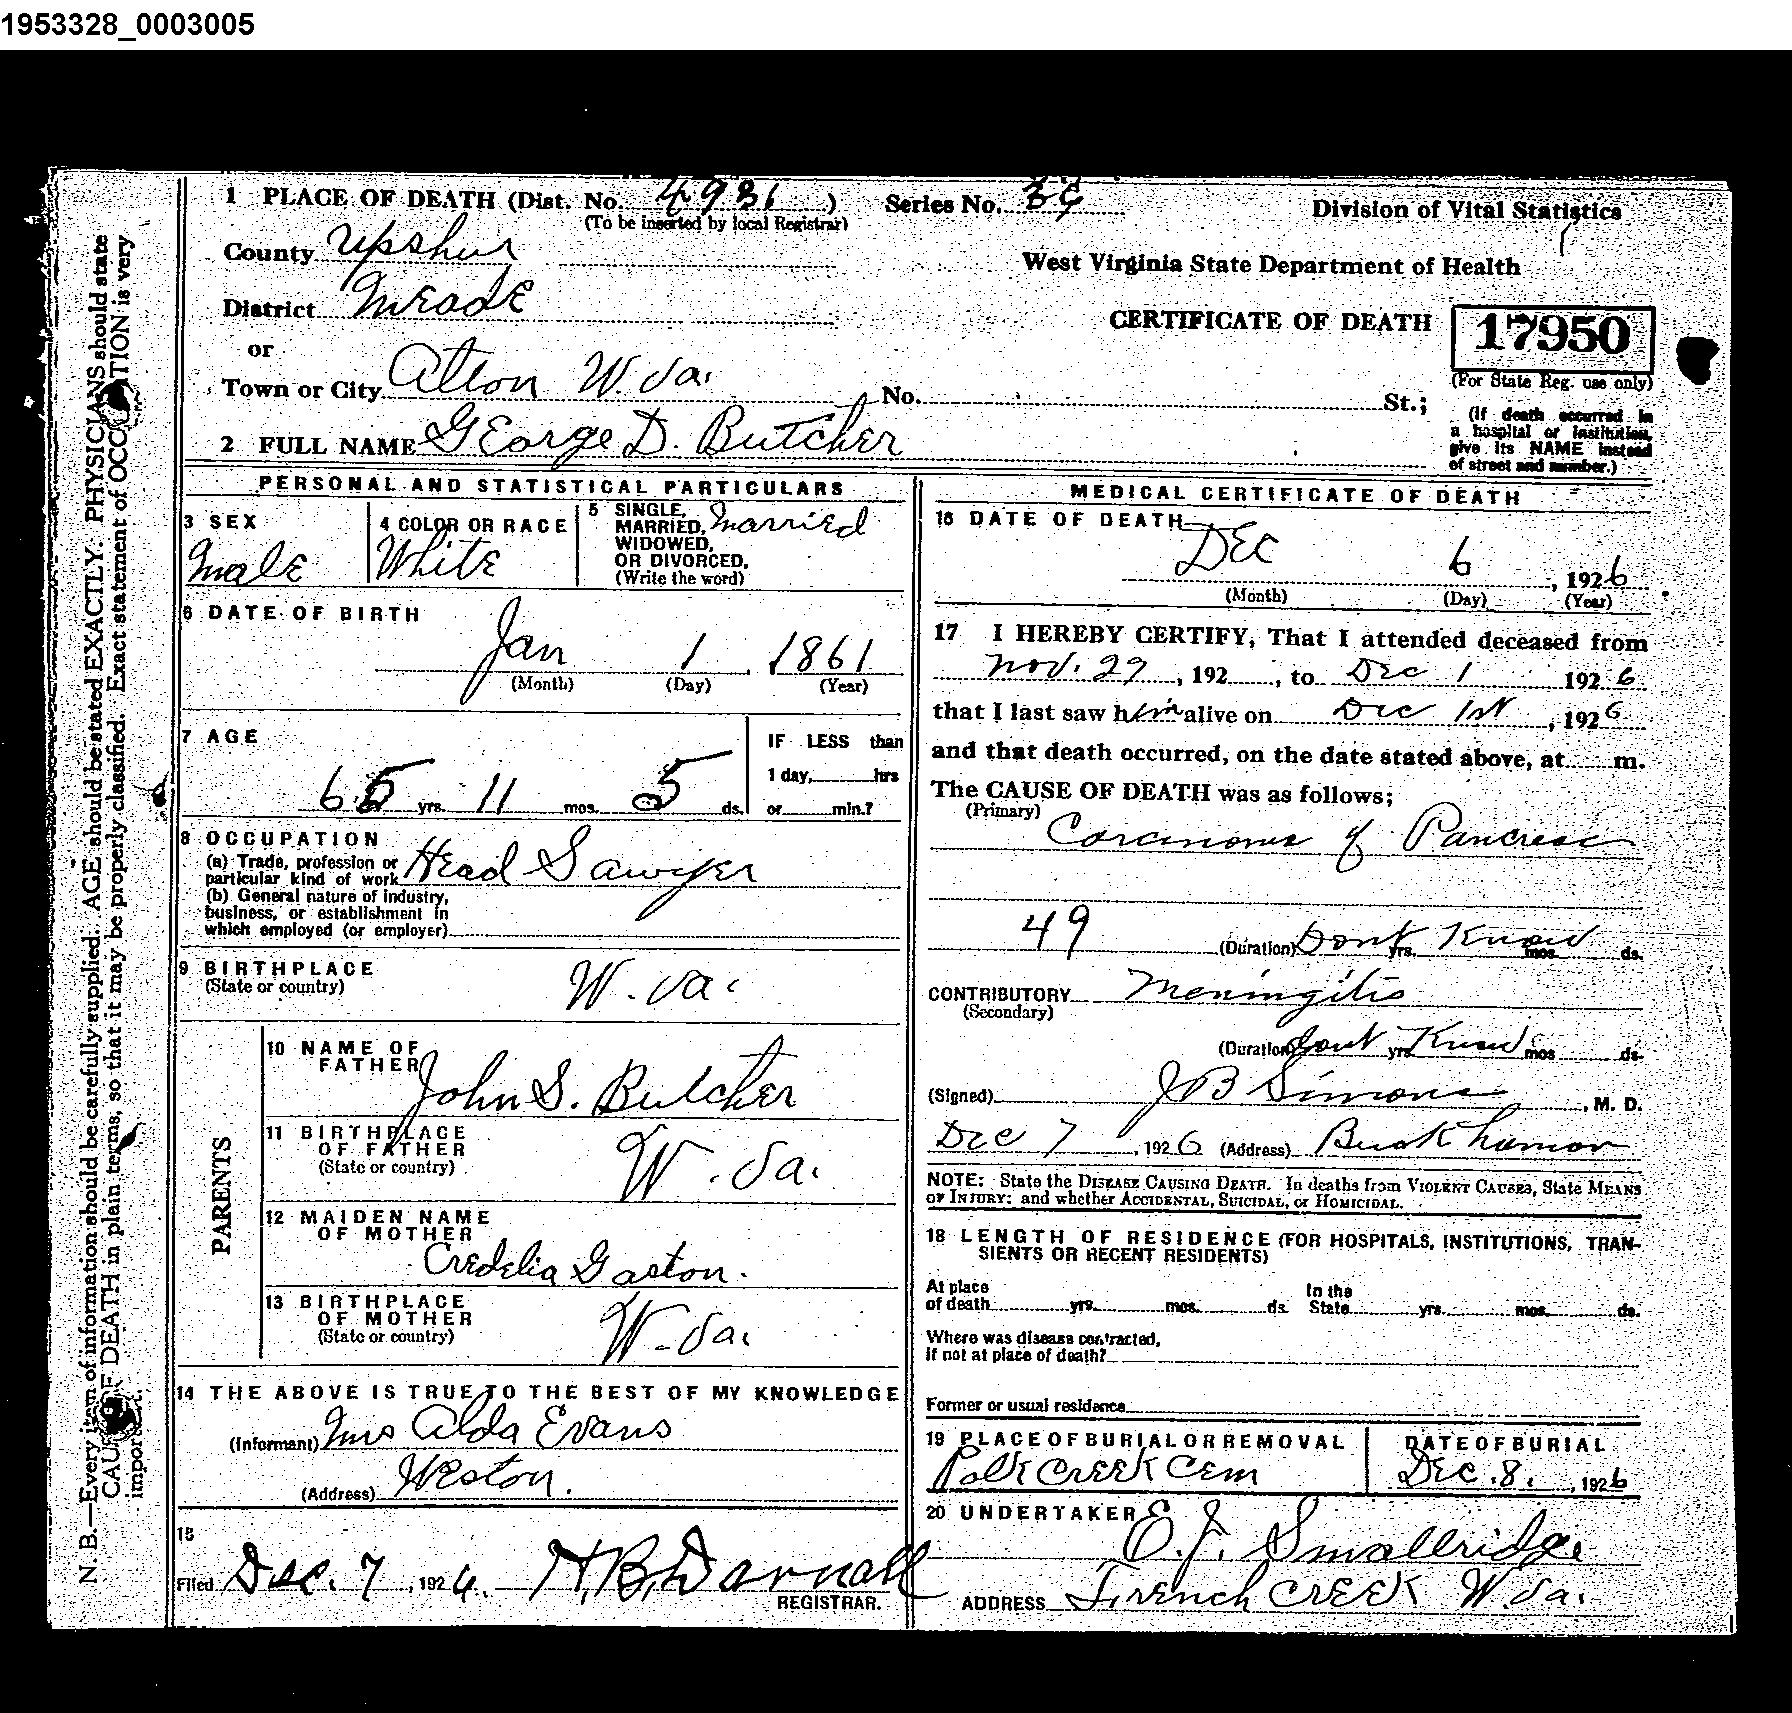 1953328_0003005
1 PLACE OF DEATH (Dist. No. 4981 ) Series No. 39 Division of Vital Statistics
(To be inserted by local Registrar)
County Upshur
West Virginia State Department of Health
District Meade
CERTIFICATE OF DEATH 17950
or
(For State Reg. use only)
Town or City Alton W. Va. No. St.;
(If death occurred in
a hospital or institution,
give its NAME instead
of street and number.)
2 FULL NAME George D. Butcher
PERSONAL AND STATISTICAL PARTICULARS
3 SEX 4 COLOR OR RACE 5 SINGLE,
MARRIED, Married
WIDOWED,
OR DIVORCED,
(Write the word)
Male White
6 DATE OF BIRTH
Jan 1 1861
(Month) (Day) (Year)
7 AGE
65 yrs. 11 mos. 5 ds.
IF LESS than
1 day, hrs
or min.?
8 OCCUPATION
(a) Trade, profession or
particular kind of work Head Sawyer
(b) General nature of industry,
business, or establishment in
which employed (or employer)
9 BIRTHPLACE
(State or country) W. Va.
PARENTS
10 NAME OF
FATHER John S. Butcher
11 BIRTHPLACE
OF FATHER
(State or country) W. Va.
12 MAIDEN NAME
OF MOTHER
Credelia Gaston.
13 BIRTHPLACE
OF MOTHER
(State or country) W. Va.
14 THE ABOVE IS TRUE TO THE BEST OF MY KNOWLEDGE
(Informant) Mrs Alda Evans
(Address) Weston.
15
Filed Dec. 7, 1926. H. B. Darnall
REGISTRAR.
MEDICAL CERTIFICATE OF DEATH
16 DATE OF DEATH
Dec 6, 1926
(Month) (Day) (Year)
17 I HEREBY CERTIFY, That I attended deceased from
Nov. 29, 192 , to Dec 1 1926
that I last saw him alive on Dec 1st, 1926
and that death occurred, on the date stated above, at m.
The CAUSE OF DEATH was as follows;
(Primary)
Carcinoma of Pancreas
49 (Duration) Dont yrs. Know mos. ds.
CONTRIBUTORY Meningitis
(Secondary)
(Duration) dont yrs Know mos ds.
(Signed) J B Simons, M. D.
Dec 7, 1926 (Address) Buckhannon
NOTE: State the DISEASE CAUSING DEATH. In deaths from VIOLENT CAUSES, State MEANS
OF INJURY; and whether ACCIDENTAL, SUICIDAL, or HOMICIDAL.
18 LENGTH OF RESIDENCE (FOR HOSPITALS, INSTITUTIONS, TRAN-
SIENTS OR RECENT RESIDENTS)
At place In the
of death yrs. mos. ds. State yrs. mos. ds.
Where was disease contracted,
if not at place of death?
Former or usual residence
19 PLACE OF BURIAL OR REMOVAL DATE OF BURIAL
Polk Creek Cem Dec. 8., 1926
20 UNDERTAKER E. J. Smallridge
ADDRESS French Creek W. Va.
N. B.—Every item of information should be carefully supplied. AGE should be stated EXACTLY. PHYSICIANS should state
CAUSE OF DEATH in plain terms, so that it may be properly classified. Exact statement of OCCUPATION is very
important.